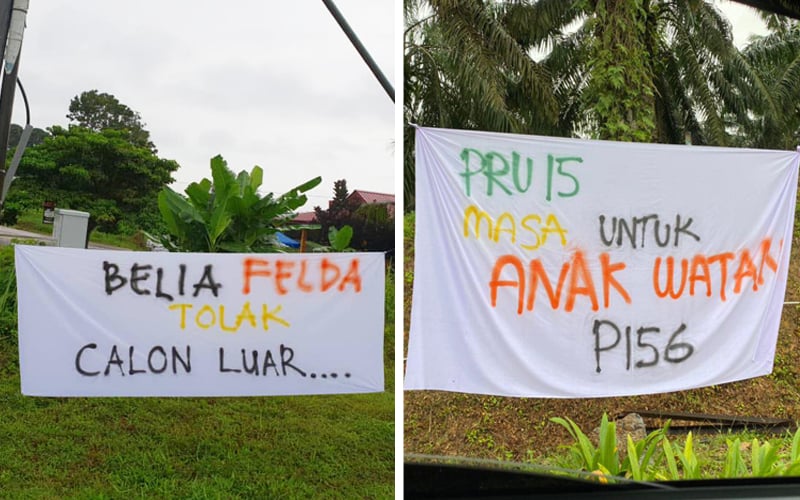 BELIA FELDA
TOLAK
CALON LUAR....
PRU 15
MASA UNTUK
ANAK WATAN
P156